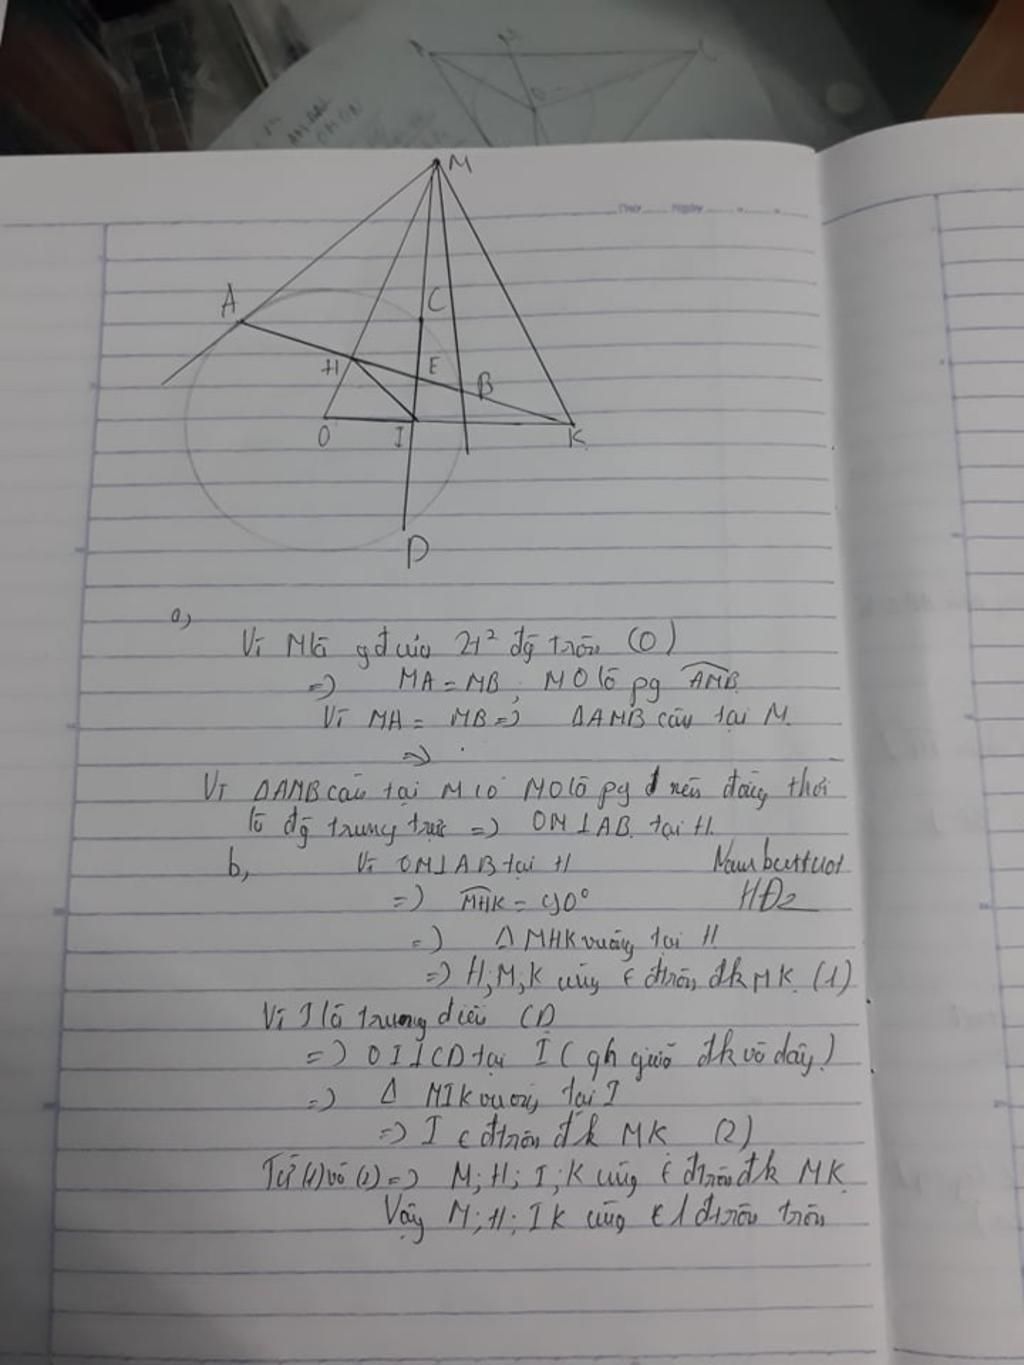 M
Thứ Ngày
A
C
H
E
B
O
I
K
D
a,
Vì M là gđ của 2t² đg tròn (O)
=) MA = MB; MO là pg AMB
Vì MA = MB =) ΔAMB cân tại M.
=)
Vì ΔAMB cân tại M có MO là pg nên đồng thời
là đg trung trực =) OM⊥AB tại H.
b, Vì OM⊥AB tại H
=) MHK = 90°
HĐ2
=) Δ MHK vuông tại H
=) H; M, K cùng ∈ đtròn đk MK. (1)
Vì I là trung điểm CD
=) OI⊥CD tại I (qh giữa đk và dây)
=) Δ MIK vuông tại I
=) I ∈ đtròn đk MK (2)
Từ (1) và (2) =) M; H; I; K cùng ∈ đtròn đk MK
Vậy M; H; I K cùng ∈ 1 đtròn tròn